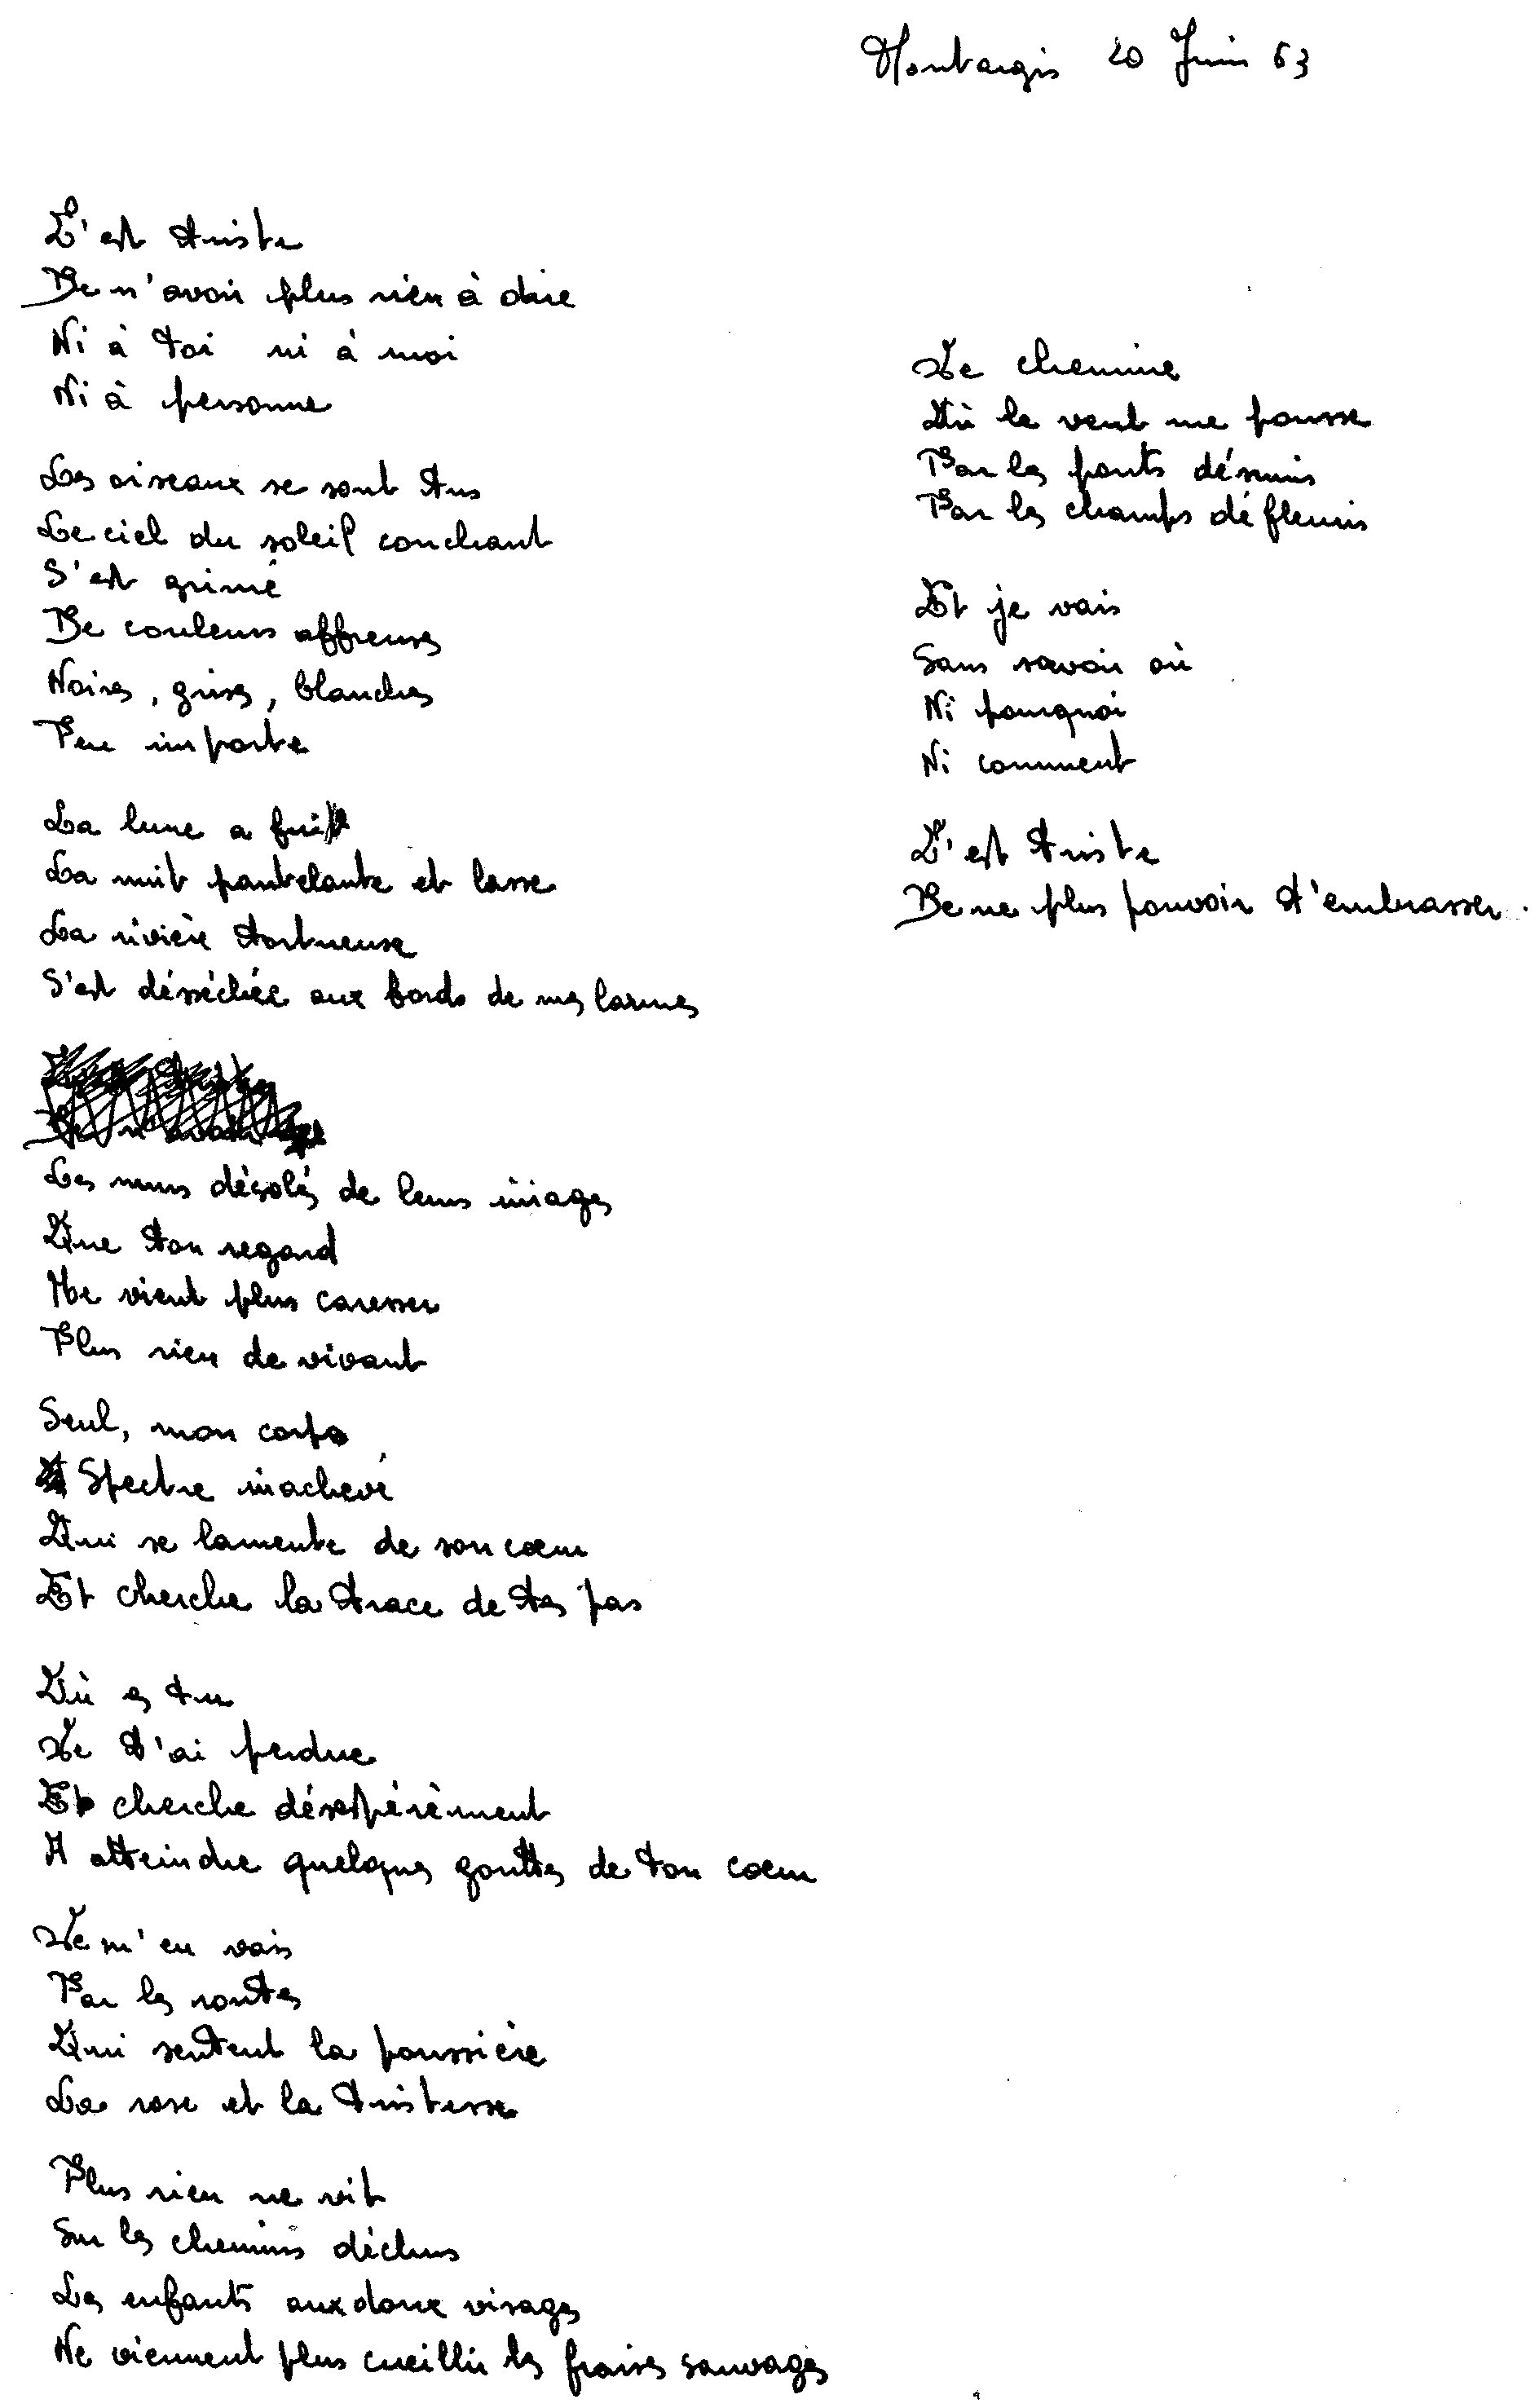 Montargis 20 Juin 63
C'est triste
De n'avoir plus rien à dire
Ni à toi ni à moi
Ni à personne
Les oiseaux se sont tus
Le ciel du soleil couchant
S'est grimé
De couleurs affreuses
Noires, grises, blanches
Peu importe
La lune a fui
La nuit pantelante et lasse
La rivière tortueuse
S'est désséchée aux bords de mes larmes
Les murs désolés de leurs images
Que ton regard
Ne vient plus caresser
Plus rien de vivant
Seul, mon corps
Spectre inachevé
Qui se lamente de son coeur
Et cherche la trace de tes pas
Où es tu
Je t'ai perdue
Et cherche désespérèment
A atteindre quelques gouttes de ton coeur
Je m'en vais
Par les routes
Qui sentent la poussière
La rose et la tristesse
Plus rien ne vit
Sur les chemins déchus
Les enfants aux doux visages
Ne viennent plus cueillir les fraises sauvages
Je chemine
Où le vent me pousse
Par les ponts désunis
Par les champs défleuris
Et je vais
Sans savoir où
Ni pourquoi
Ni comment
C'est triste
De ne plus pouvoir t'embrasser.